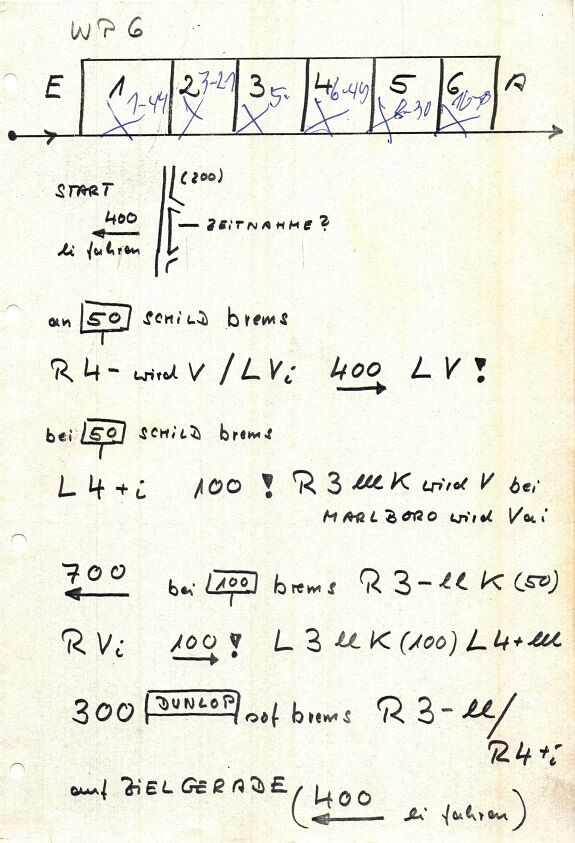 WP 6
E 1 2 3 4 5 6 A
1-44 3-21 5- 6-49 8-30
START (200)
400 ZEITNAHME?
li fahren
an 50 SCHILD brems
R 4- wird V / L Vi 400 L V !
bei 50 SCHILD brems
L 4+i 100 ! R 3 lll K wird V bei
MARLBORO wird Vai
700 bei 100 brems R 3- ll K (50)
R Vi 100 ! L 3 ll K (100) L 4+ lll
300 DUNLOP sof brems R 3- ll /
R 4+i
auf ZIELGERADE (400 li fahren)